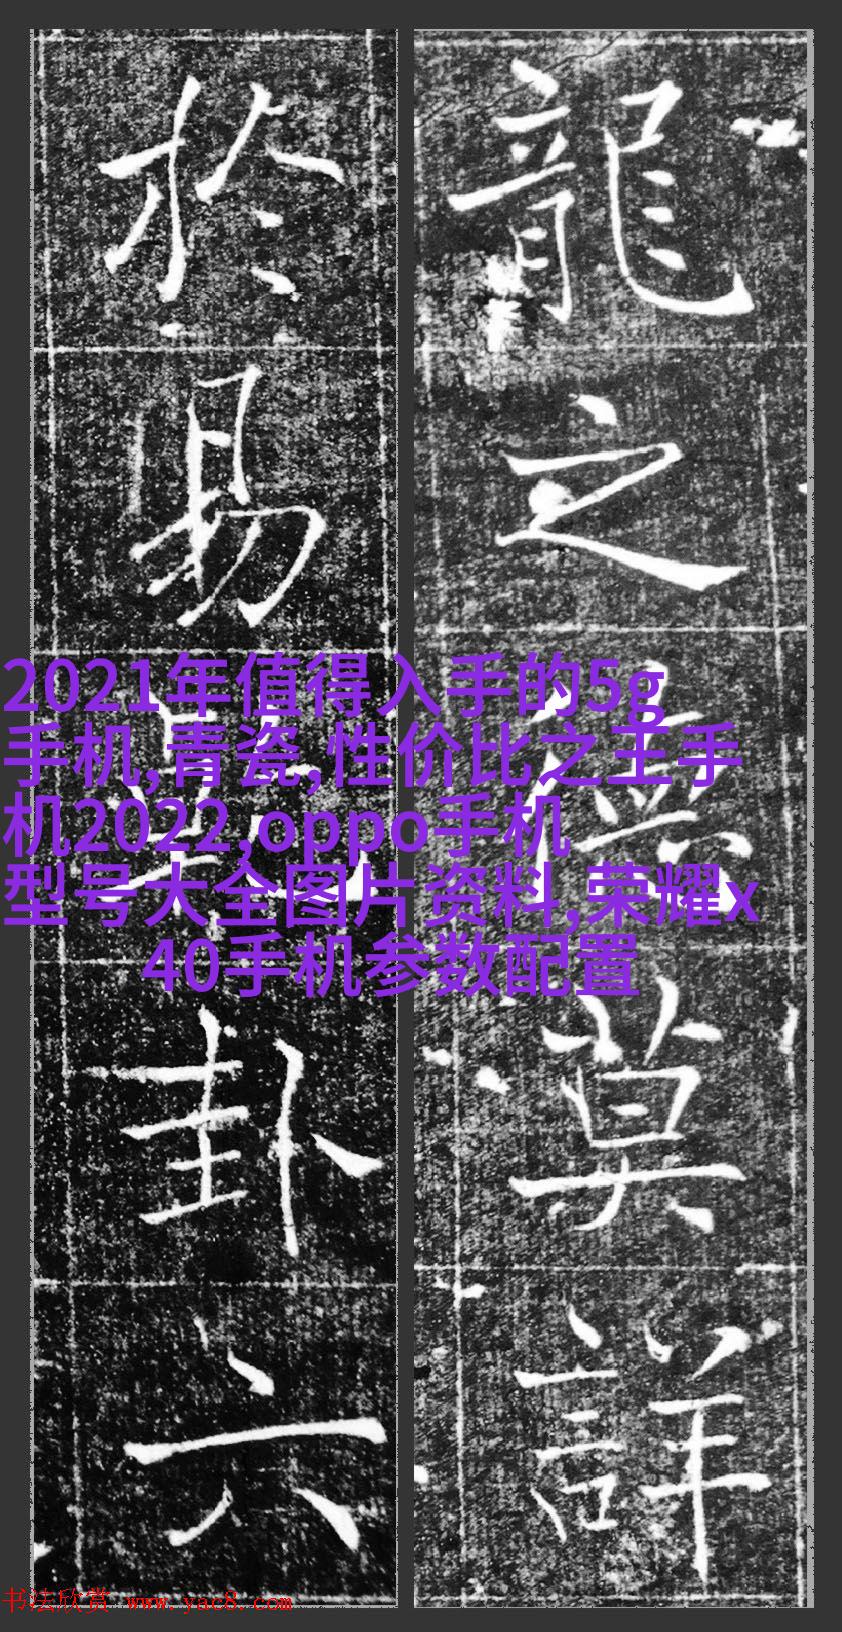 龍之莫詳
於易卦六
2021年值得入手的5g
手机,青瓷,性价比之王手
机2022,oppo手机
型号大全图片资料,荣耀x
40手机参数配置
书法欣赏 www.yac8.com